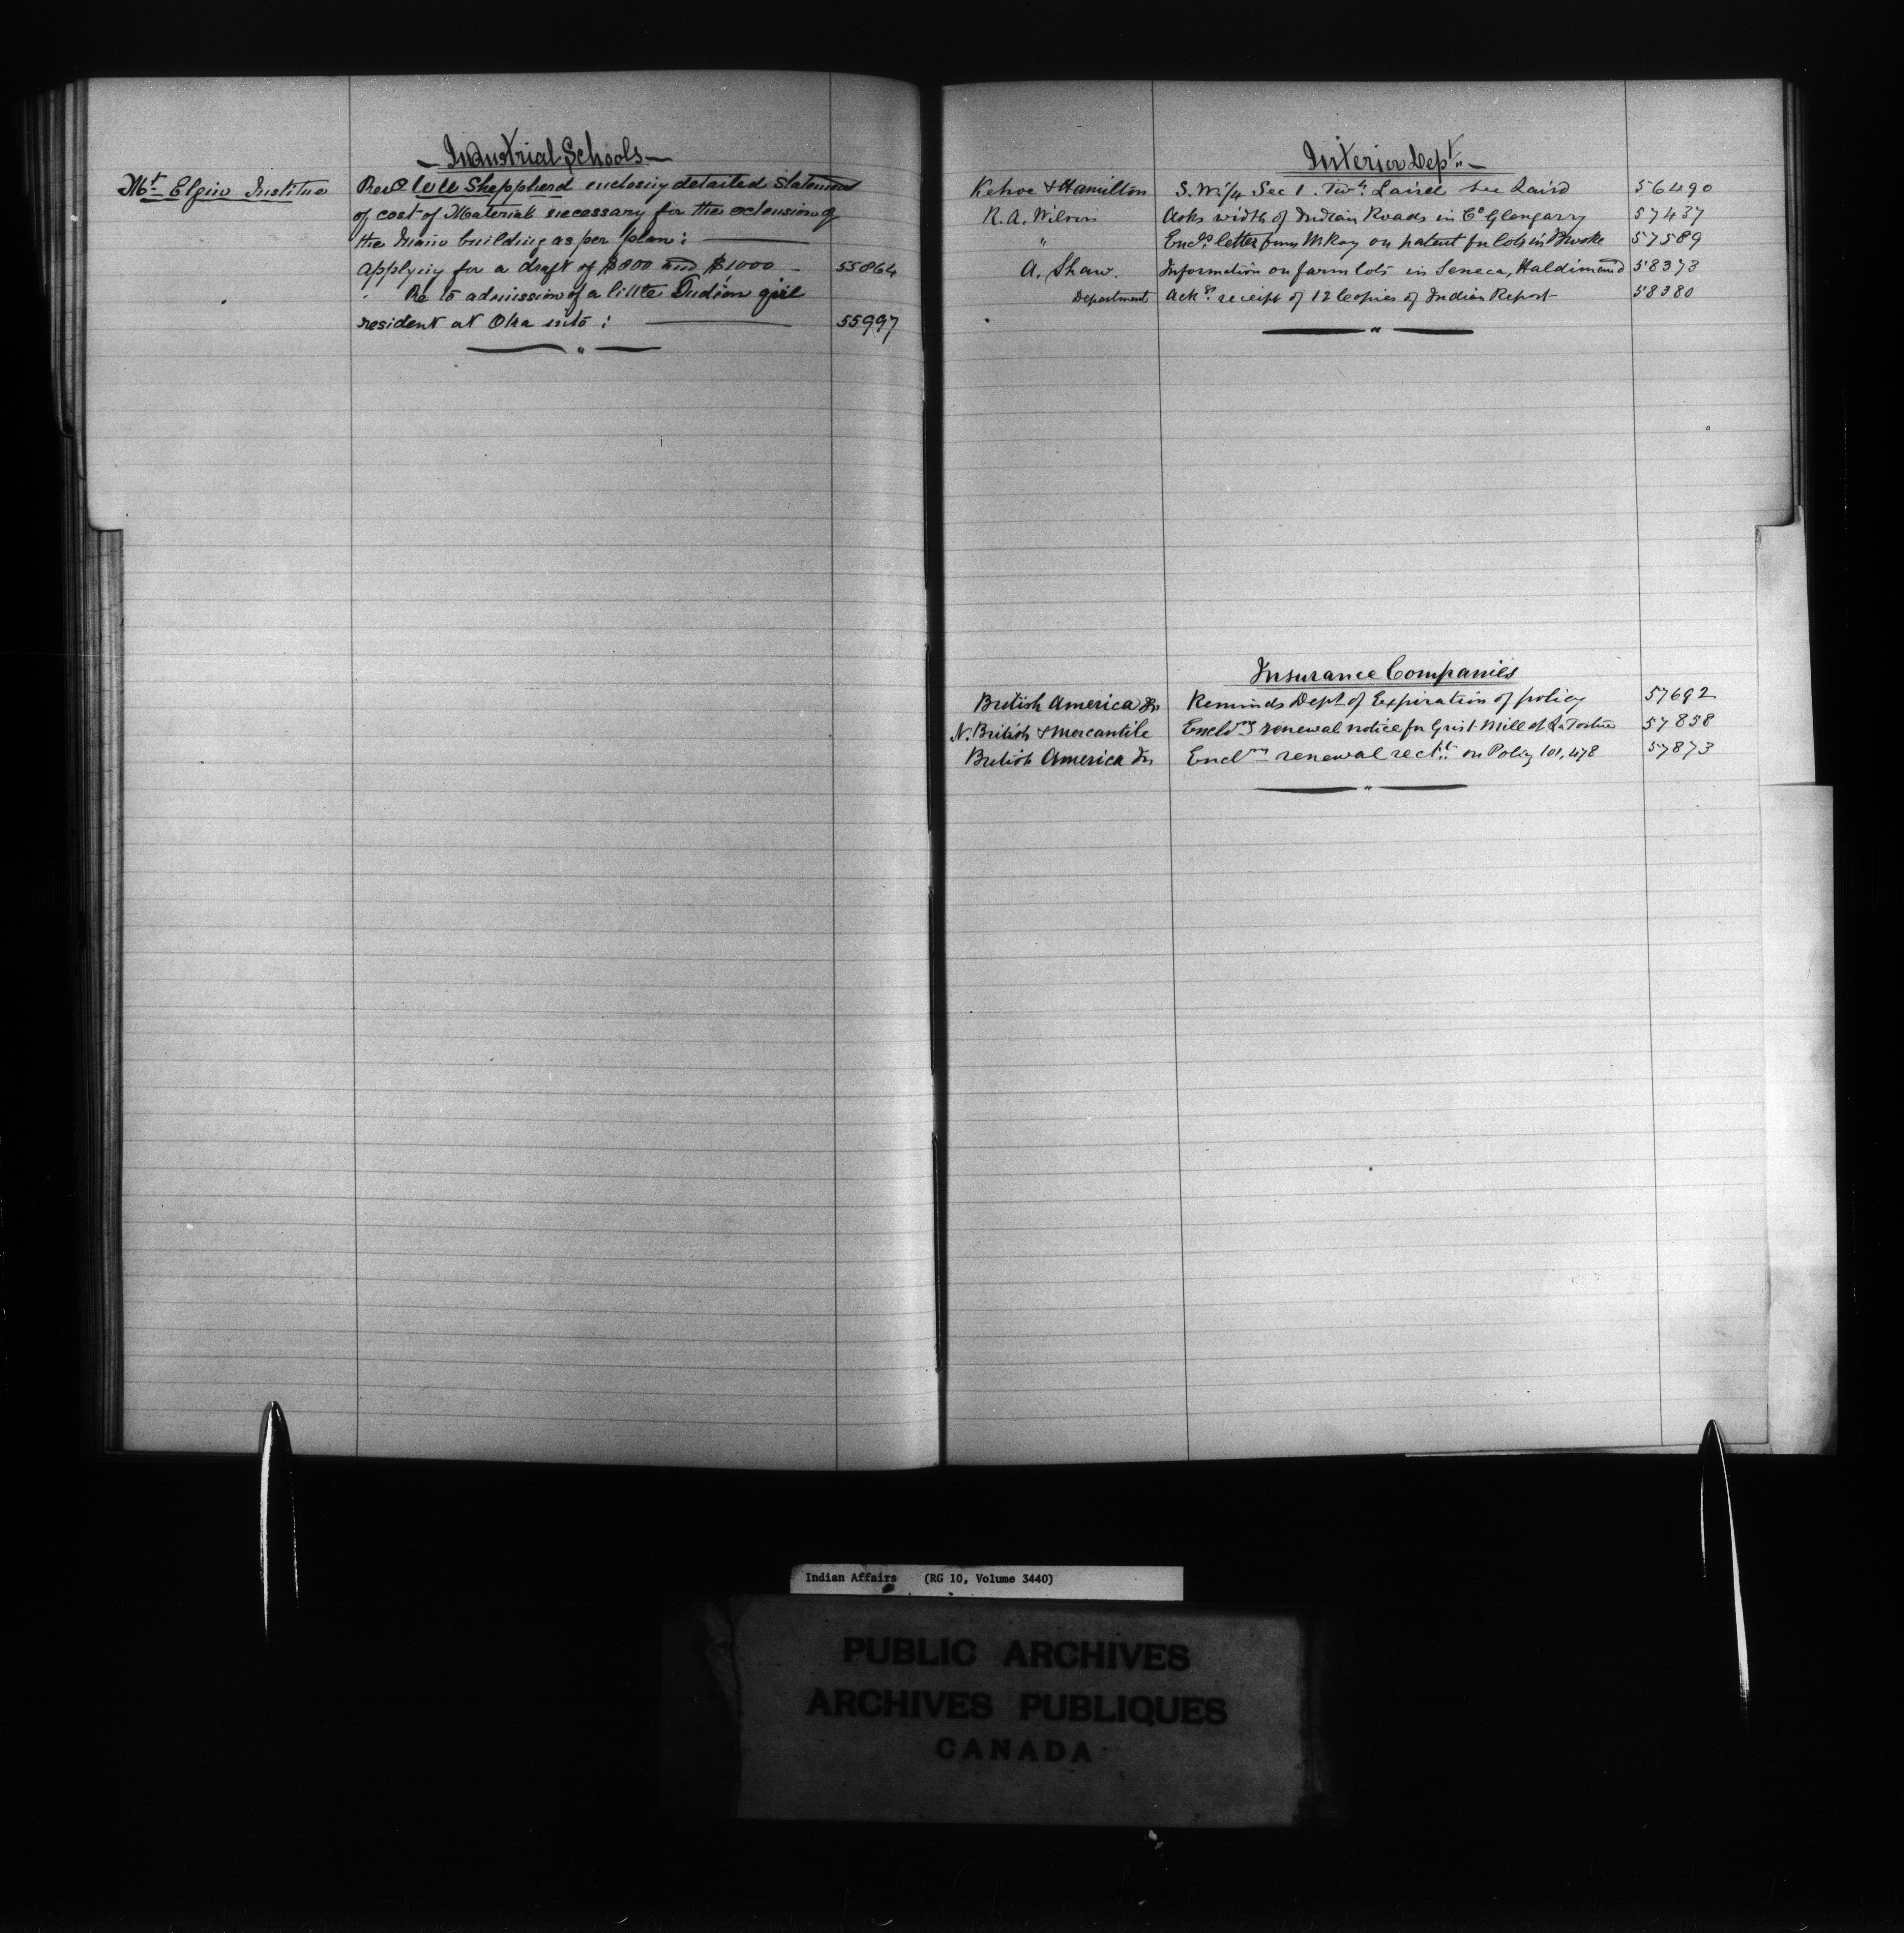 Industrial Schools
Mt Elgin Institue Revd W W Sheppherd enclosing detailed Statement
of cost of Material necessary for the extension of
the Main building as per plan:
applying for a draft of $800 and $1000 55864
Re to admission of a little Indian girl
resident at Oka into: 55997
Interior Dept
Kehoe & Hamilton S.W. 1/4 Sec 1. Twn. Laird see Laird 56490
R. A. Wilson Asks width of Indian Roads in Co Glengarry 57437
" Encls letter from McKay on patent for lots in Brooke 57589
A. Shaw. Information on farm lots in Seneca, Haldimand 58373
Department Acks receipt of 12 Copies of Indian Report 58380
Insurance Companies
British America Reminds Dept of Expiration of policy 57692
N. British & Mercantile Enclng renewal notice for Grist Mill at La Tortue 57858
British America Enclng renewal rect. on Policy 101,478 57873
Indian Affairs (RG 10, Volume 3440)
PUBLIC ARCHIVES
ARCHIVES PUBLIQUES
CANADA